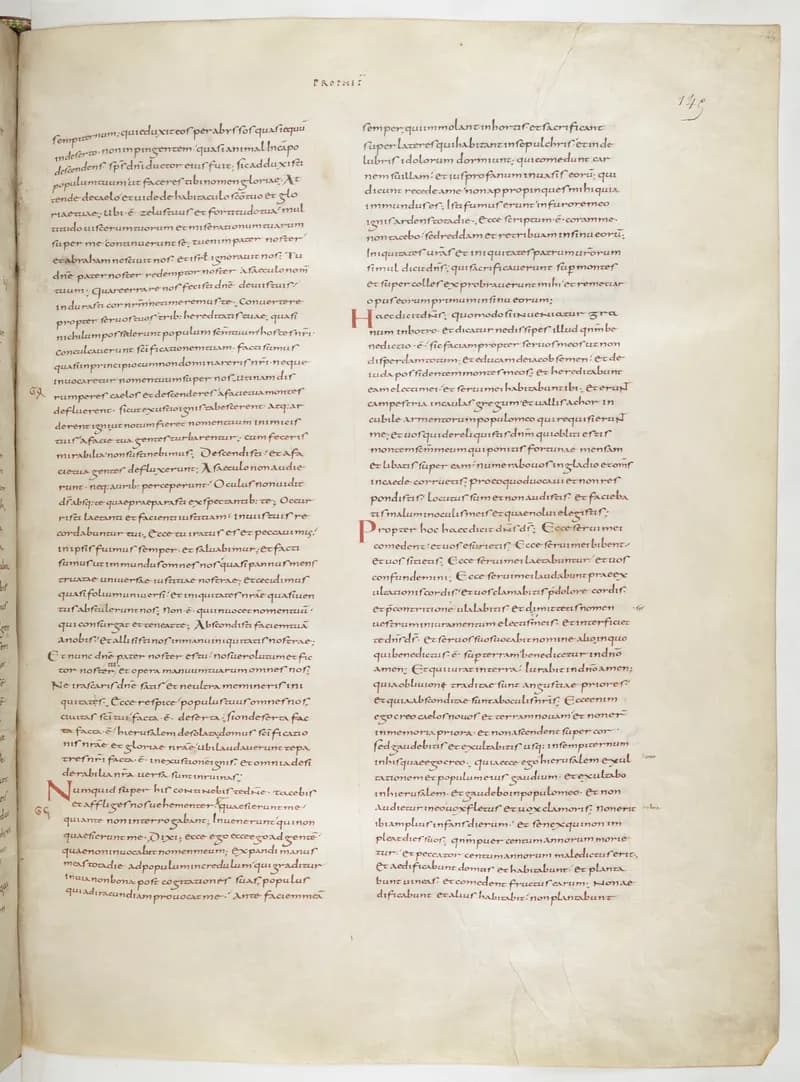 PROPHET
149
sempiternum; qui eduxit eos per abyssos quasi equũ
in deserto non inpingentem; quasi animal In cãpo
descendens sps dni ductor eius fuit; sic adduxisti
populum tuum ut faceres tibi nomen gloriae; At
tende de caelo et uide de habitaculo sco tuo et glo
riae tuae; Ubi ẽ zelus tuus et fortitudo tua; mul
titudo uiscerum tuorum et miserationum tuarum
super me continuerunt se; tu enim pater noster
et abraham nesciuit nos et isrl ignorauit nos; Tu
dne pater noster redemptor noster a saeculo nom
tuum; Quare errare nos fecisti dne de uiis tuis;
indurasti cor nrm ne timeremus te; Conuertere
propter seruos tuos trib; hereditatis tuae; quasi
nihilum possiderunt populum scm tuum hostes nri
conculcauerunt scificationem tuam; facti sumus
quasi in principio cum non dominareris nri neque
inuocaretur nomen tuum super nos; utinam dis
rumperes caelos et descenderes a facie tua montes
defluerent; sicut exustio ignis tabescerent aq; ar
derent igni ut notum fieret nomen tuum inimicis
tuis a facie tua gentes turbarentur; cum feceris
mirabilia non sustinebimus; Descendisti et a fa
cie tua gentes defluxerunt; A saeculo non audie
runt neq; aurib; perceperunt; Oculus non uidit
ds absq; te quae praeparasti exspectantib; te; Occur
risti laetanti et facienti iustitiam; in uiis tuis re
cordabuntur tui; Ecce tu iratus es et peccauimus;
in ipsis fuimus semper et saluabimur; et facti
sumus ut inmundus omnes nos quasi pannus mens
truatae uniuersae iustitiae nostrae; et cecidimus
quasi folium uniuersi et iniquitates nrae quasi uen
tus abstulerunt nos; Non ẽ qui inuocet nomen tuũ
qui consurgat et teneat te; Abscondisti faciem tuã
a nobis; et allisisti nos in manu iniquitatis nostrae;
Et nunc dne pater noster es tu; nos uero lutum et fic
tor noster tu; et opera manuum tuarum omnes nos;
Ne irascaris dne satis et ne ultra memineris ini
quitatis; Ecce respice populus tuus omnes nos;
ciuitas sci tui facta ẽ deserta; sion deserta fac
ta ẽ; hierusalem desolata; domus scificatio
nis nrae et gloriae nrae ubi laudauerunt te pa
tres nri facta ẽ in exustionem ignis; et omnia desi
derabilia nra uersa sunt in ruinas;
Numquid super his continebis te dne; tacebis
et affliges nos uehementer; quaesierunt me
qui ante non interrogabant; Inuenerunt qui non
quaesierunt me; Dixi; ecce ego ecce ego ad gentẽ
quae non inuocabit nomen meum; expandi manus
meas tota die ad populum incredulum qui graditur
in uia non bona post cogitationes suas; populus
qui ad iracundiam prouocat me; Ante faciem meã
semper; qui immolant in hortis et sacrificant
super lateres qui habitant in sepulchris et in de
lubris idolorum dormiunt; qui comedunt car
nem suillam; et ius profanum in uasis eorũ; qui
dicunt recede a me non appropinques mihi quia
inmundus es; Isti fumus erunt in furore meo
ignis ardens tota die; Ecce scriptum ẽ coram me;
non tacebo; sed reddam et retribuam in sinu eorũ;
Iniquitates uras et iniquitates patrum urorum
simul dicit dns; qui sacrificauerunt sup montes
et super colles exprobrauerunt mihi; et remetiar
opus eorum primum in sinu eorum;
Haec dicit dns; quomodo si inueniatur gra
num in botro; et dicatur ne dissipes illud qnm be
nedictio ẽ; sic faciam propter seruos meos ut non
disperdam totum; et educam de iacob semen et de
iuda possidentem montes meos; et hereditabunt
eam electi mei; et serui mei habitabunt ibi; et erunt
campestria in caulas gregum et uallis achor in
cubile armentorum populo meo qui requisierunt
me; et uos qui dereliquistis dnm qui obliti estis
montem scm meum qui ponitis fortunae mensam
et libatis super eam; numerabo uos in gladio et oms
in caede corruetis; pro eo quod uocaui et non res
pondistis; locutus sum et non audistis; et facieba
tis malum in oculis meis et quae nolui elegistis;
Propter hoc haec dicit dns ds; Ecce serui mei
comedent; et uos esurietis; Ecce serui mei bibent
et uos sitietis; Ecce serui mei laetabuntur; et uos
confundemini; Ecce serui mei laudabunt prae ex
ultatione cordis; et uos clamabitis p dolore cordis
et p contritione ululabitis et dimittetis nomen
uestrum in iuramentum electis meis; et interficiet
te dns ds; et seruos suos uocabit nomine alio; in quo
qui benedictus ẽ sup terram benedicetur in dno
amen; Et qui iurat in terra; Iurabit in dno amen;
quia obliuioni traditae sunt angustiae priores;
et quia absconditae sunt ab oculis nris; Ecce enim
ego creo caelos nouos et terram nouam; et non erт
in memoria priora et non ascendent super cor;
sed gaudebitis et exultabitis usq; in sempiternum
in his quae ego creo; quia ecce ego hierusalem exul
tationem et populum eius gaudium; et exultabo
in hierusalem; et gaudebo in populo meo; et non
audietur in eo uox fletus et uox clamoris; Non erit
ibi amplius infans dierum; et senex qui non im
pleat dies suos; qnm puer centum annorum morie
tur; et peccator centum annorum maledictus erit;
et aedificabunt domus et habitabunt; et planta
bunt uineas; et comedent fructus earum; Non ae
dificabunt et alius habitabit; non plantabunt